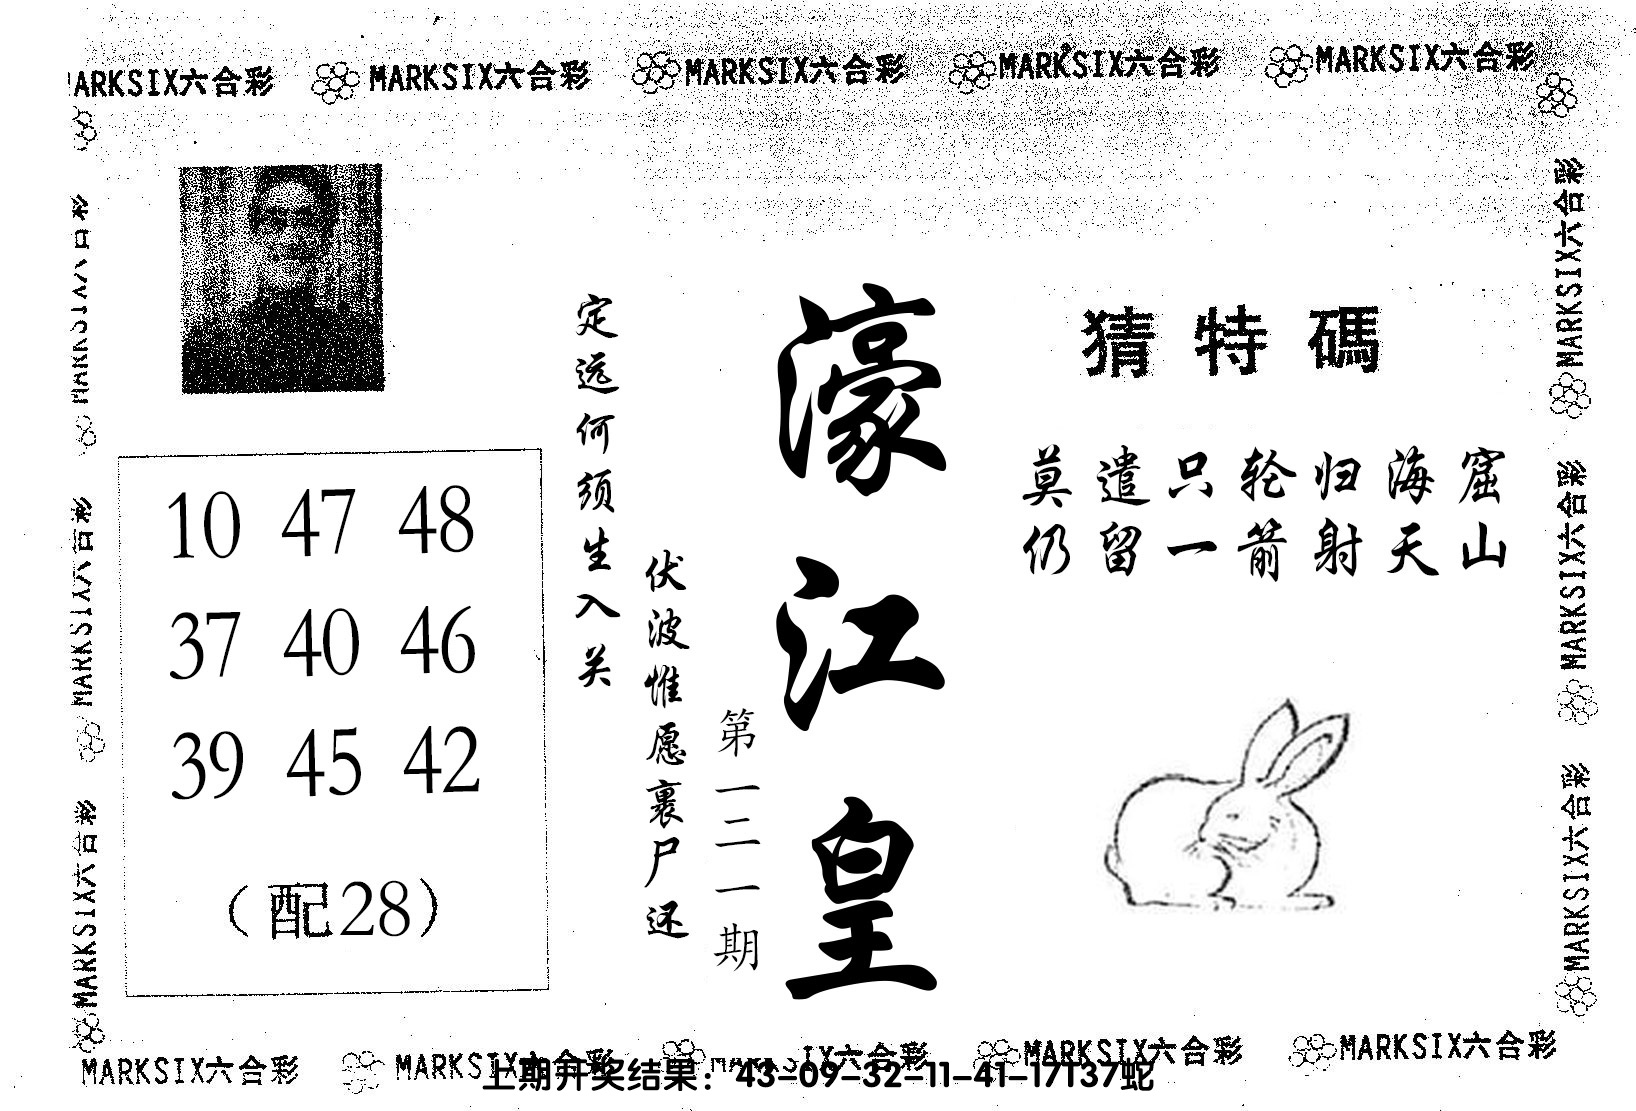 MARKSIX六合彩 MARKSIX六合彩 MARKSIX六合彩 MARKSIX六合彩 MARKSIX六合彩
猜特碼
莫遣只轮归海窟
仍留一箭射天山
濠江皇
第一二一期
定远何须生入关
伏波惟愿裹尸还
10 47 48
37 40 46
39 45 42
（配28）
MARKSIX六合彩
MARKSIX六合彩
MARKSIX六合彩
MARKSIX六合彩
MARKSIX六合彩
MARKSIX六合彩
MARKSIX六合彩 MARKSIX六合彩 MARKSIX六合彩 MARKSIX六合彩 MARKSIX六合彩
上期开奖结果：43-09-32-11-41-17T37蛇